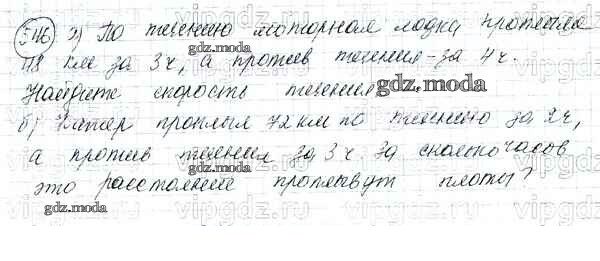 546 а) По течению моторная лодка проплыла
48 км за 3 ч, а против течения - за 4 ч.
Найдите скорость течения.
б) Катер проплыл 72 км по течению за 2 ч,
а против течения за 3 ч. За сколько часов
это расстояние проплывут плоты?
gdz.moda
gdz.moda
gdz.moda
gdz.moda
gdz.moda
vipgdz.ru
vipgdz.ru